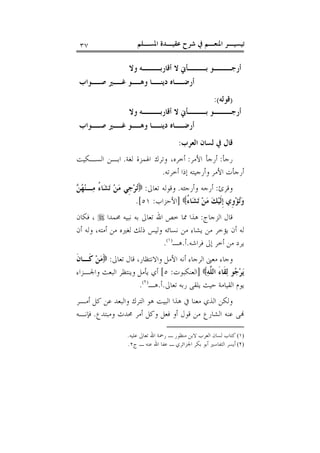 تيسيـــر المنعـــم في شرح عقيـــدة المســـلم ٣٧
أرجـــو بـــأني لا أقاربـــه ولا
أرضـــاه دينـــا وهـــو غـــير صـــواب
(قوله):
أرجـــو بـــأني لا أقاربـــه ولا
أرضـــاه دينـــا وهـــو غـــير صـــواب
قال في لسان العرب:
رجأ: أرجأ الأمر: أخره، وترك الهمزة لغة. ابـــن الســـكيت
أرجأت الأمر وأرجيته إذا أخرته.
وقرئ: أرجه وأرجئه. وقوله تعالى: ﴿تُرْجِي مَنْ تَشَاءُ مِنْهُنَّ
وَتُؤْوِي إِلَيْكَ مَنْ تَشَاءُ﴾ [الأحزاب: ٥١].
قال الزجاج: هذا مما خص الله تعالى به نبيه محمدا ﷺ، فكان
له أن يؤخر من يشاء من نسائه وليس ذلك لغيره من أمته، وله أن
يرد من أخر إلى فراشه.أ.هـ(١).
وجاء معنى الرجاء أنه الأمل والانتظار، قال تعالى: ﴿مَنْ كَـــانَ
يَرْجُو لِقَاءَ اللَّهِ﴾ [العنكبوت: ٥] أي يأمل وينتظر البعث والجـــزاء
يوم القيامة حيث يلقى ربه تعالى.أ.هـ(٢).
ولكن الذي معنا في هذا البيت هو الترك والبعد عن كل أمـــر
نهى عنه الشارع من قول أو فعل وكل أمر محدث ومبتدع. فإنـــه
(١) كتاب لسان العرب لابن منظور ــ رحمة الله تعالى عليه.
(٢) أيسر التفاسير أبو بكر الجزائري ــ عفا الله عنه ــ ج٢.